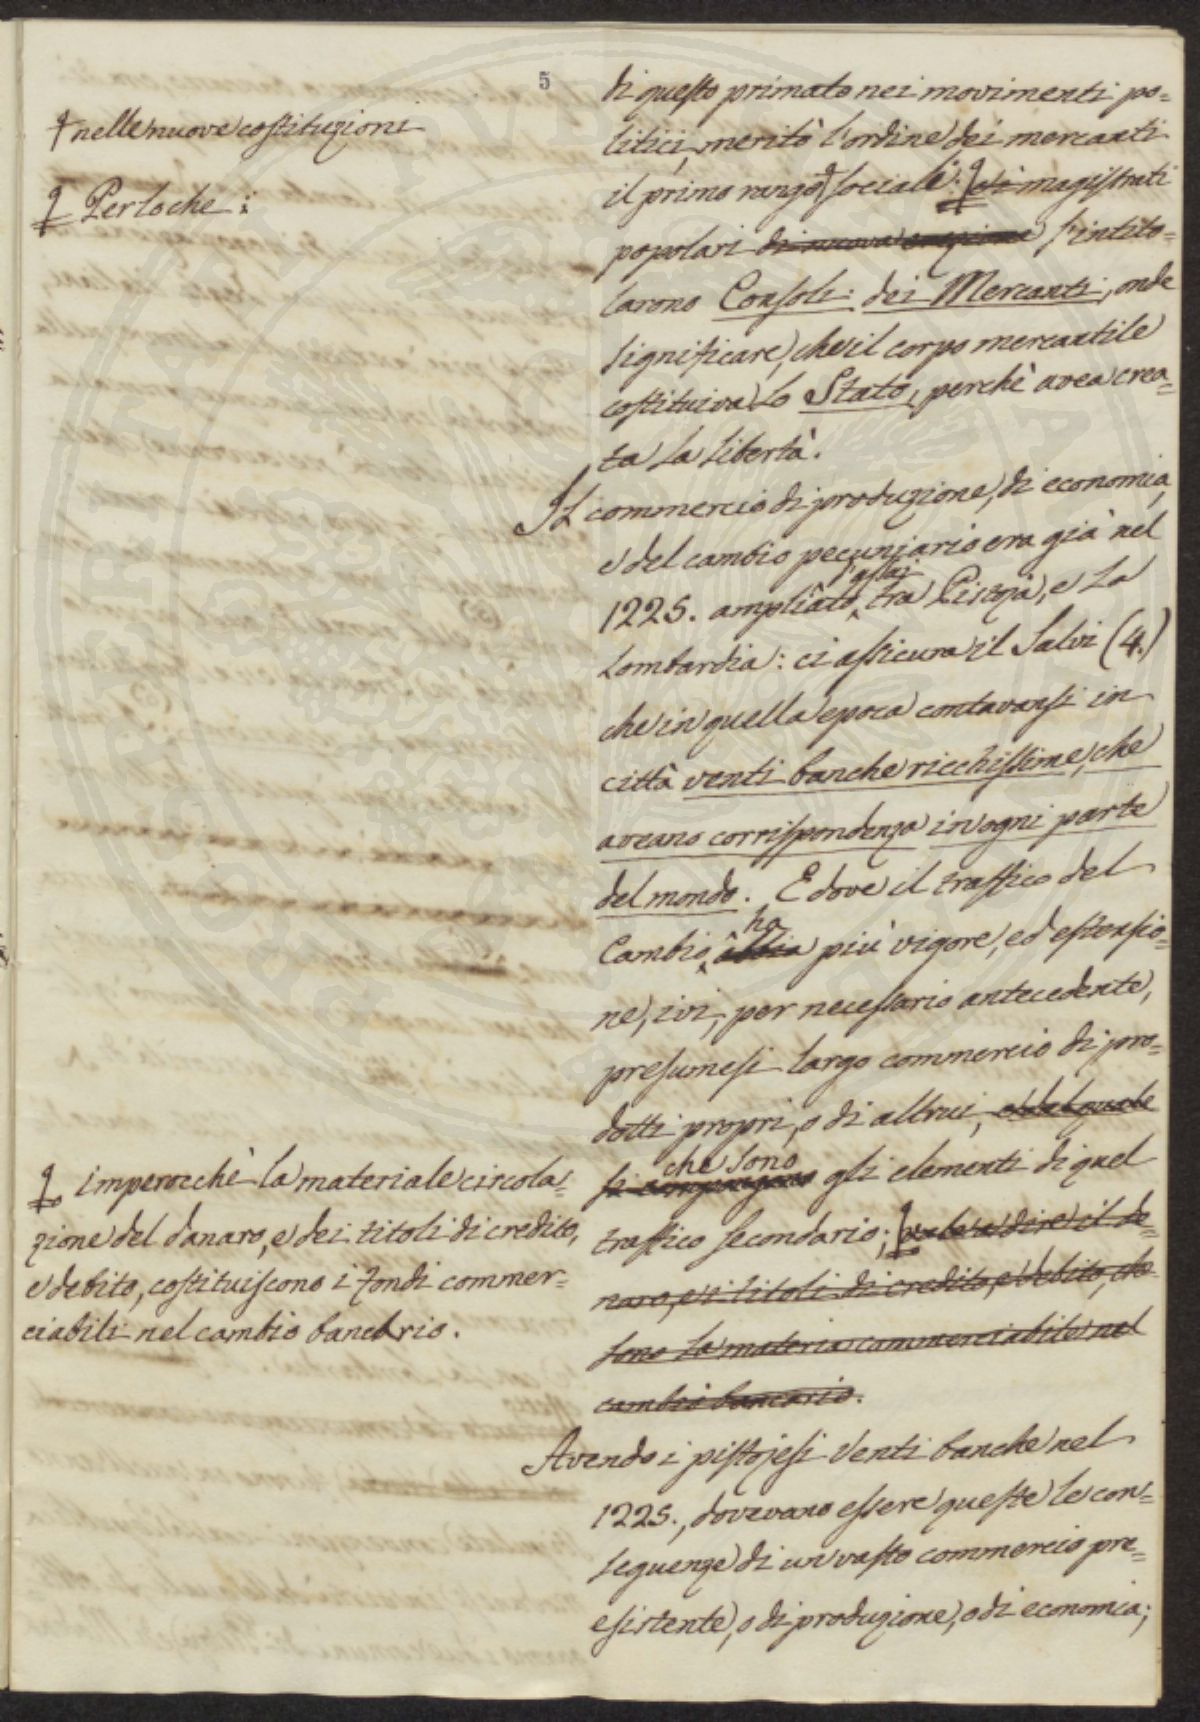 5
+ nelle nuove costituzioni
Perloche:
di questo primato nei movimenti po=
litici, meritò l'ordine dei mercanti
il primo rango sociale: ei magistrati
popolari di nuova s'intito=
larono Consoli dei Mercanti, onde
significare, che il corpo mercantile
costituiva lo Stato, perchè avea crea=
ta la libertà.
Il commercio di produzione, di economia,
e del cambio pecuniario era già nel
assai
1225. ampliato, tra Pistoja, e la
Lombardia: ci assicura il Salvi (4.)
che in quella epoca contavansi in
città venti banche ricchissime, che
aveano corrispondenza in ogni parte
del mondo. E dove il traffico del
ha
Cambio abbia più vigore, ed estensio=
ne, ivi, per necessario antecedente,
presumesi largo commercio di pro=
dotti propri, o di altrui, e del quale
che sono
si compongono gli elementi di quel
traffico secondario; vale a dire il de=
naro, e i titoli di credito, e debito, che
sono la materia commerciabile nel
cambio bancario.
imperocchè la materiale circola=
zione del danaro, e dei titoli di credito,
e debito, costituiscono i fondi commer=
ciabili nel cambio bancario.
Avendo i pistojesi venti banche nel
1225., dovevano essere queste le con=
seguenze di un vasto commercio pre=
esistente, o di produzione, o di economia;